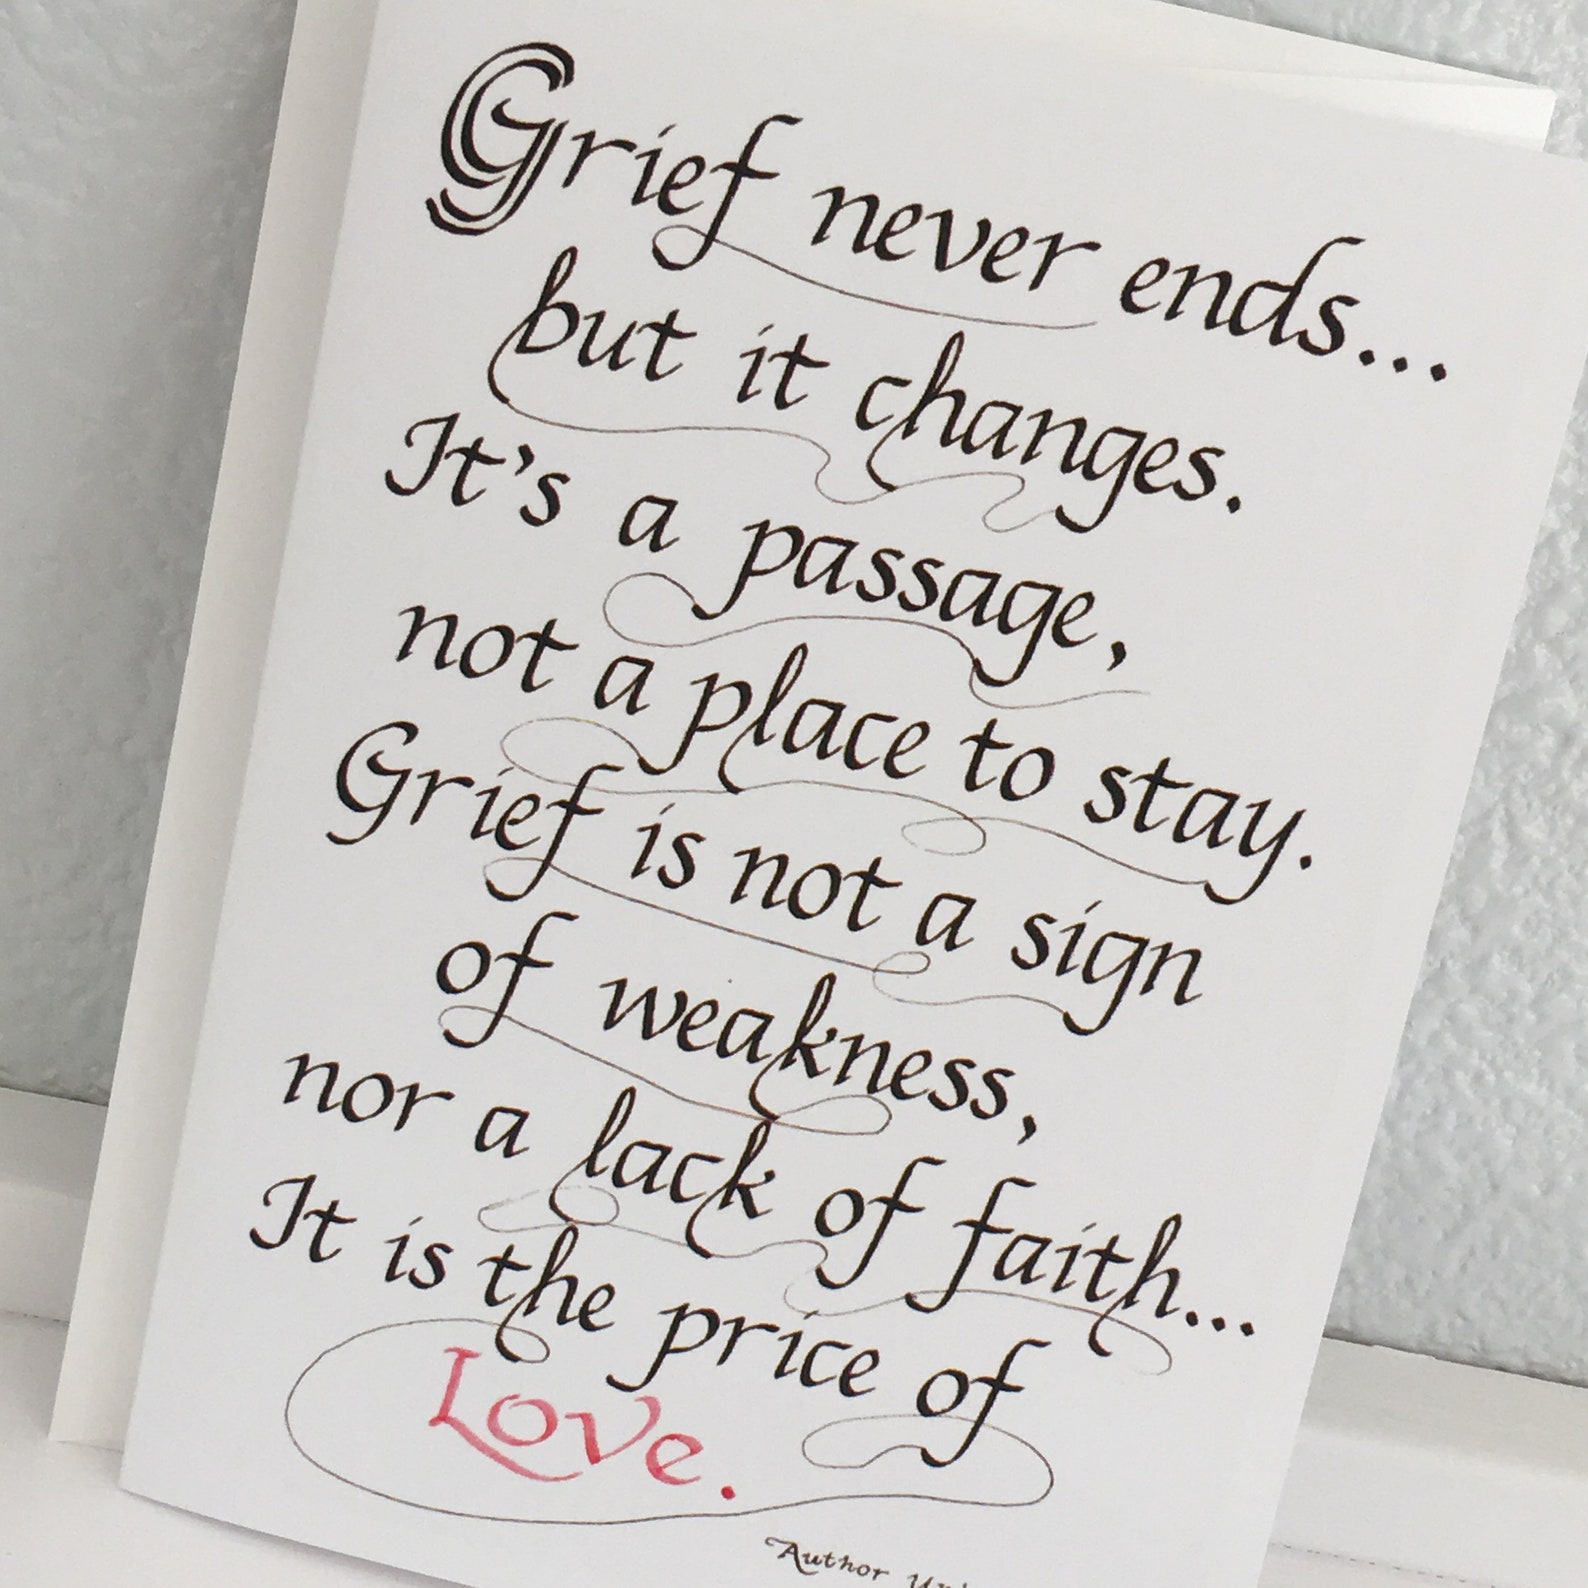 Grief never ends...
but it changes.
It's a passage,
not a place to stay.
Grief is not a sign
of weakness,
nor a lack of faith...
It is the price of
Love.
Author